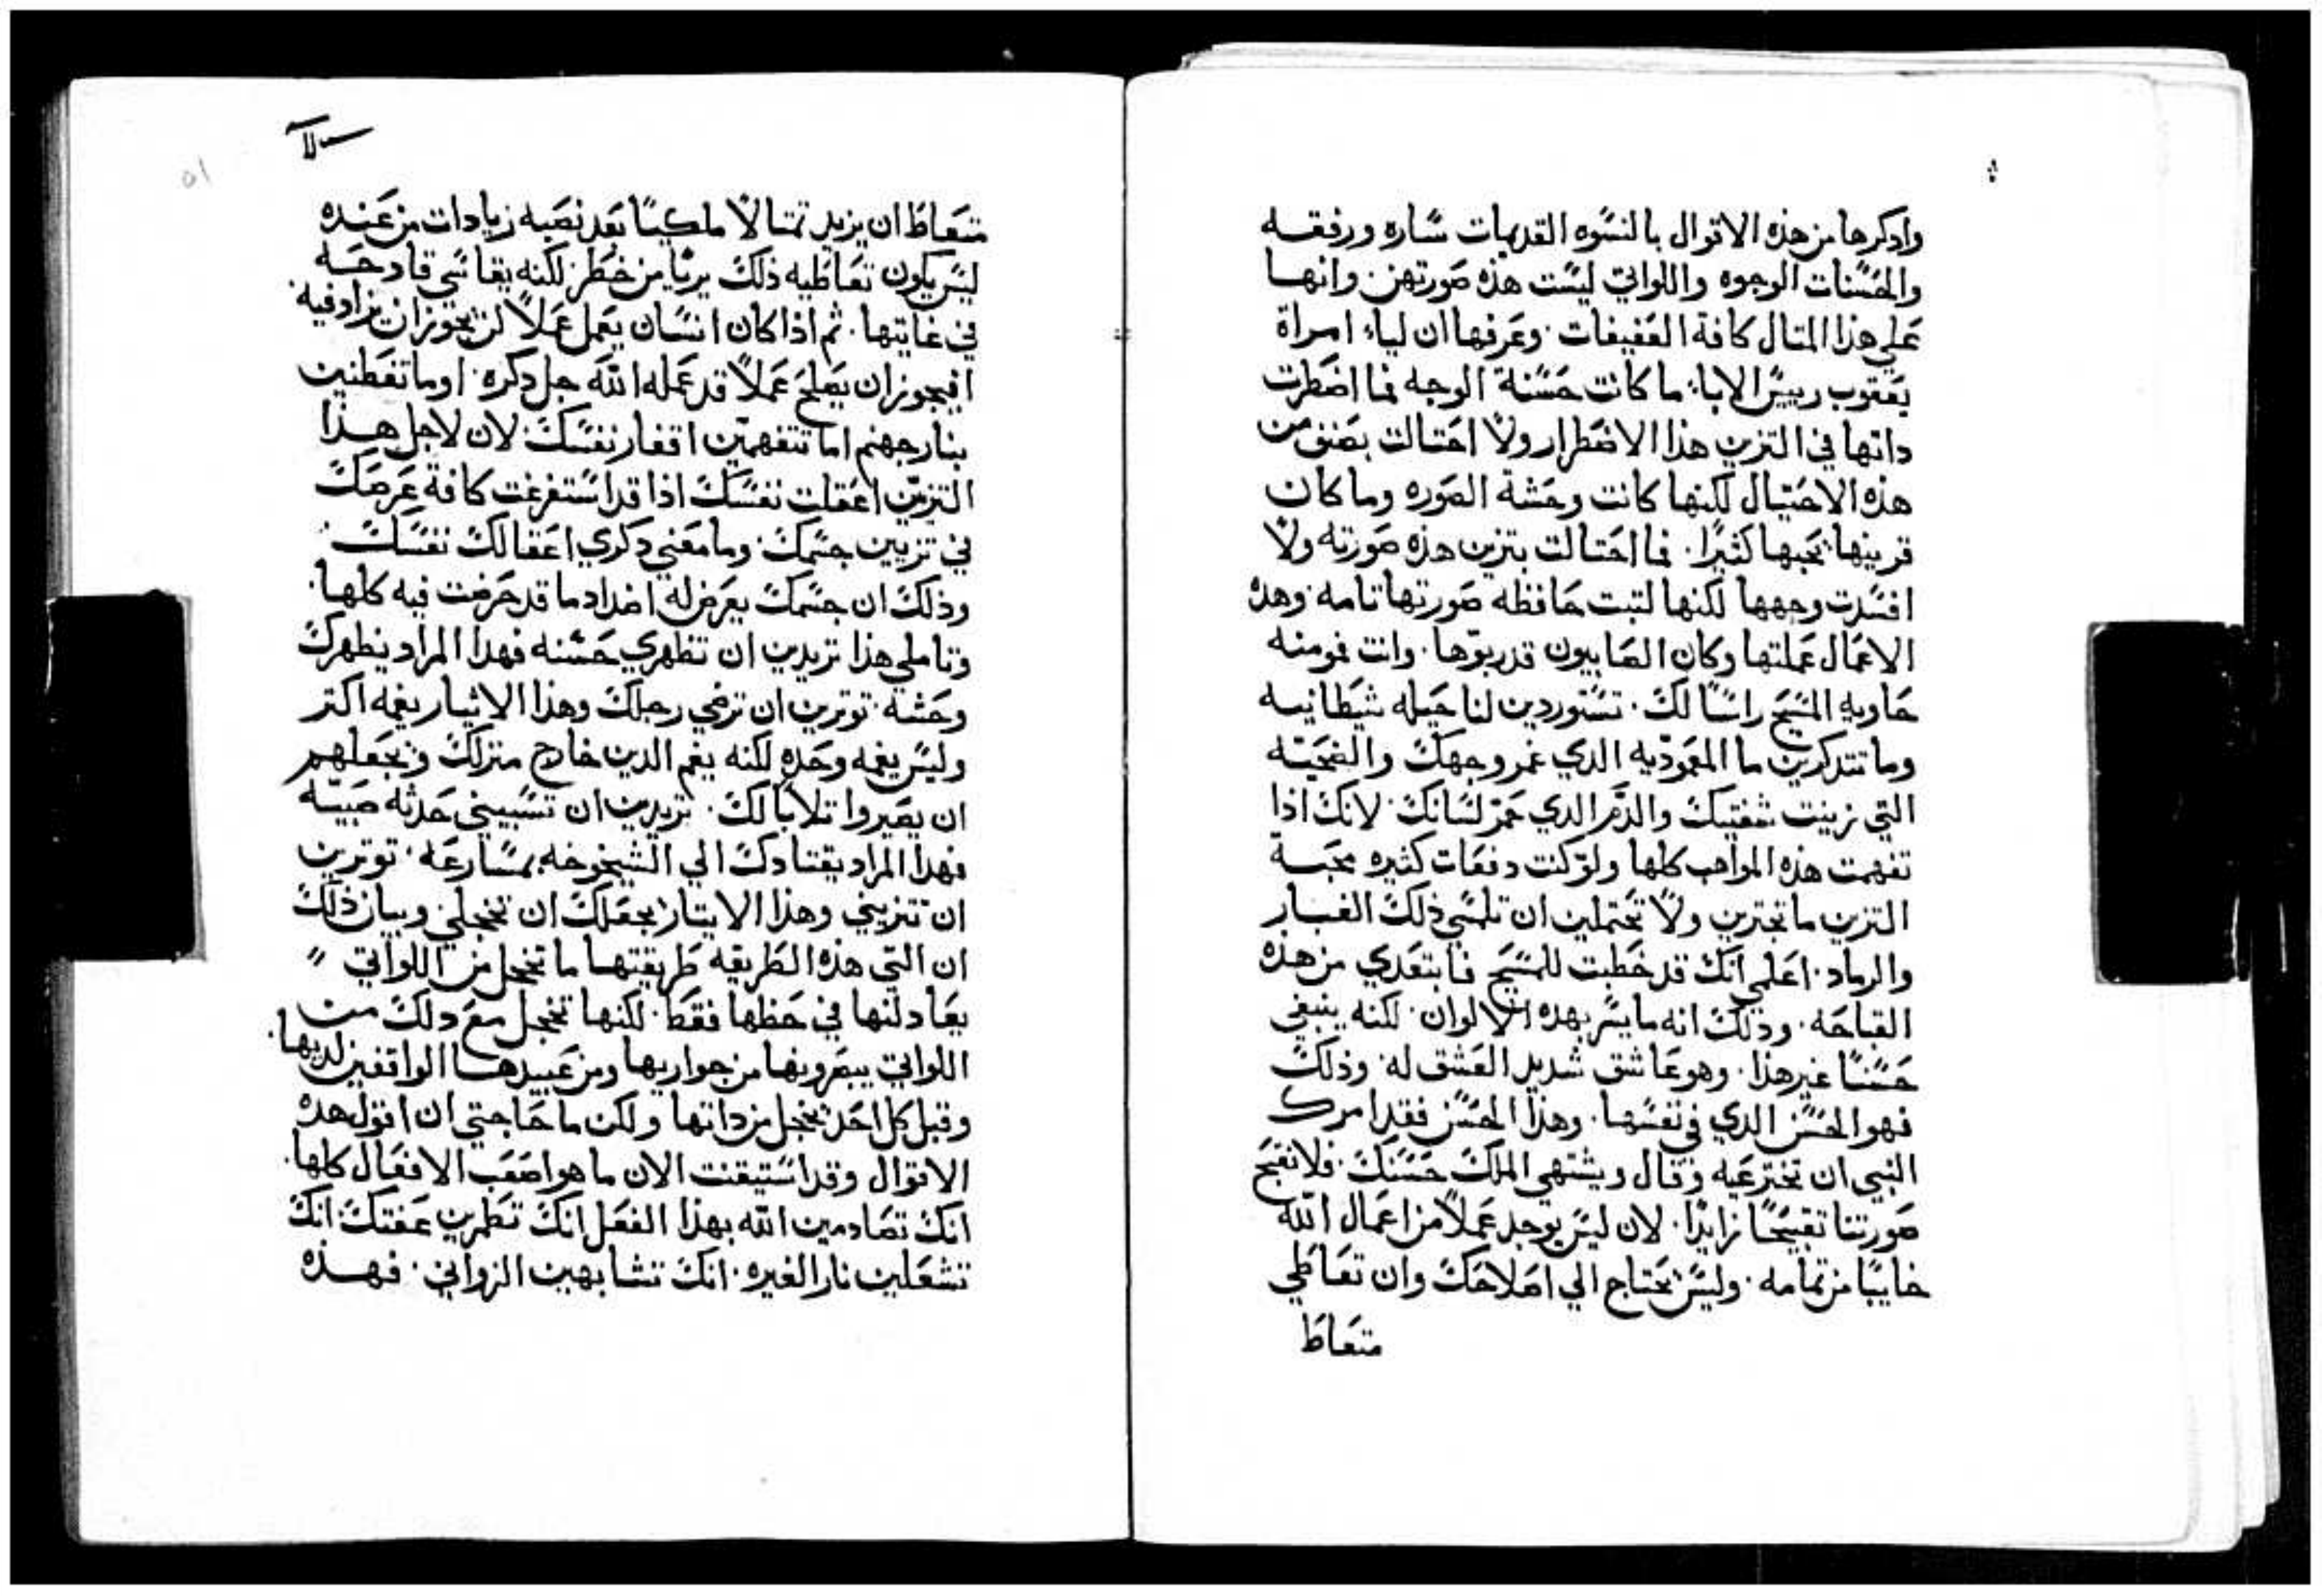 وادكرها من هذه الاقوال بالنسوه القديمات ساره ورفقه
والحسنات الوجوه واللواتي ليست هذه صورتهن وانها
علي هذا المتال كافة العفيفات. وعرفها ان لياء امراة
يعقوب رييس الاباء ما كانت حسنة الوجه فما اضطرت
داتها في التزين هذا الاضطرار ولا احتالت بصنف من
هذه الاحتيال لكنها كانت وحشة الصوره وما كان
قرينها يحبها كثيرا. فما احتالت بتزين هذه صورته ولا
افسدت وجهها لكنها لتبت حافظه صورتها تامه وهذه
الاعمال عملتها وكان الصابيون قد ربوها. وانت فمومنه
حاويه المسيح راسا لك. تستوردين لنا حيله شيطانيه
وما تتدكرين ما المعموديه الدي غمر وجهك والضحيه
التي زينت شفتيك والدم الدي حمر لسانك. لانك اذا
تفهمت هذه المواهب كلها ولو كنت دفعات كثيره محبة
التزين ما تجترين ولا تحتملين ان تلمسي ذلك الغبار
والرماد. اعلمي انك قد خطبت للمسيح فابتعدي من هذه
القباحه. وذلك انه ما يسر بهده الالوان. لكنه ينبغي
حسنا غير هذا. وهو عاشق شديد العشق له. وذلك
فهو الحسن الدي في نفسها. وهذا الحسن فقد امرك
النبي ان تخترعيه وقال ويشتهي الملك حسنك. فلا نقبح
صورتنا تقبيحا زايدا. لان ليس يوجد عملا من اعمال الله
خايبا من تمامه. وليس يحتاج الي اصلاحك وان تعاطي
متعاط
متعاط ان يزيد تمتالا ملكيا بعد نصبه زيادات من عنده
ليس يكون تعاطيه ذلك بريا من خطر لكنه يقاسي قادحه
في غايتها. ثم اذا كان انسان يعمل عملا لن يجوز ان يزاد فيه
افيجوز ان يصلح عملا قد عمله الله جل دكره. اوما تفطنين
بنار جهنم اما تتفهمين اقفار نفسك. لان لاجل هذا
التزين اعقلت نفسك اذا قد استفرغت كافة عرصك
في تزيين جسمك. وما معني دكري اعقالك نفسك.
وذلك ان جسمك يعرض له اضداد ما قد حرصت فيه كلها.
وتاملي هذا تريدين ان تظهري حسنه فهدا المراد يظهرك
وحشه. توترين ان ترضي رجلك وهذا الاثيار يغمه اكتر
وليس يغمه وحده لكنه يغم الدين خارج منزلك وتجعلهم
ان يصيروا تلابا لك. تريدين ان تسبيني حدثه صبيه
فهدا المراد يقتادك الي الشيخوخه بمسارعه. توترين
ان تتزيني وهذا الايتار يجعلك ان تخجلي وبيان ذلك
ان التي هذه الطريقه طريقتها ما تخجل من اللواتي
يعادلنها في حظها فقط. لكنها تخجل مع دلك من
اللواتي يبصرونها من جواريها ومن عبيدها الواقفين لديها.
وقبل كل احد تخجل من داتها ولكن ما حاجتي ان اقول هده
الاقوال وقد استيقنت الان ما هو اصعب الافعال كلها.
انك تصادمين الله بهذا الفعل انك تطمرين عفتك انك
تشعلين نار الغيره. انك تشابهين الزواني. فهذه